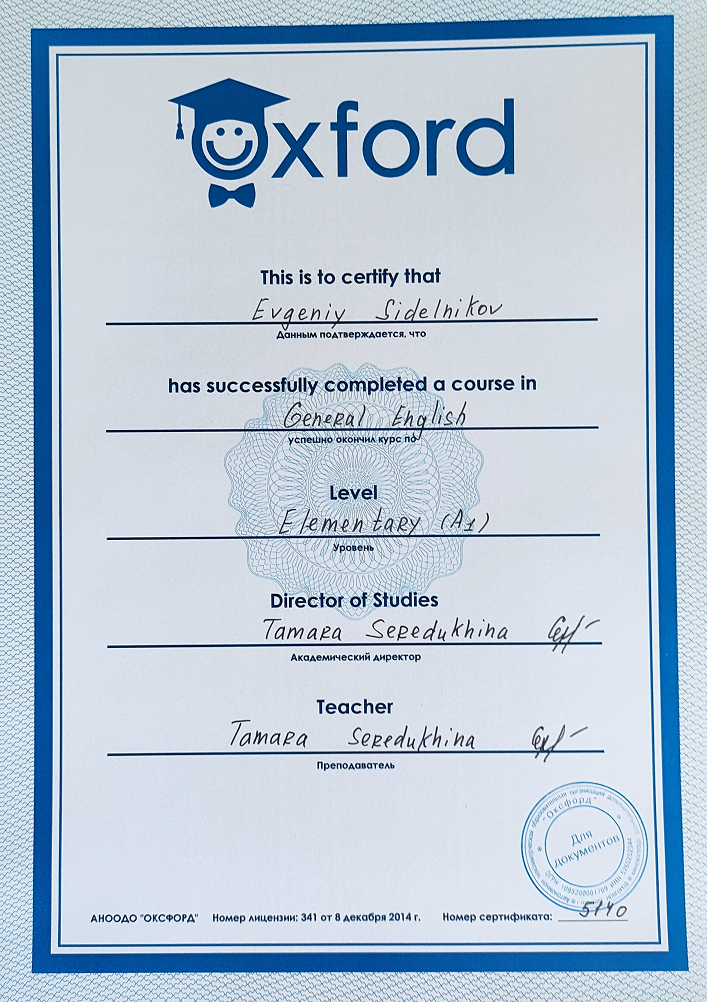 Oxford
This is to certify that
Evgeniy Sidelnikov
Данным подтверждается, что
has successfully completed a course in
General English
успешно окончил курс по
Level
Elementary (A1)
Уровень
Director of Studies
Tamara Seredukhina
Академический директор
Teacher
Tamara Seredukhina
Преподаватель
"Оксфорд"
Для
документов
АНООДО "ОКСФОРД" Номер лицензии: 341 от 8 декабря 2014 г. Номер сертификата: 5140